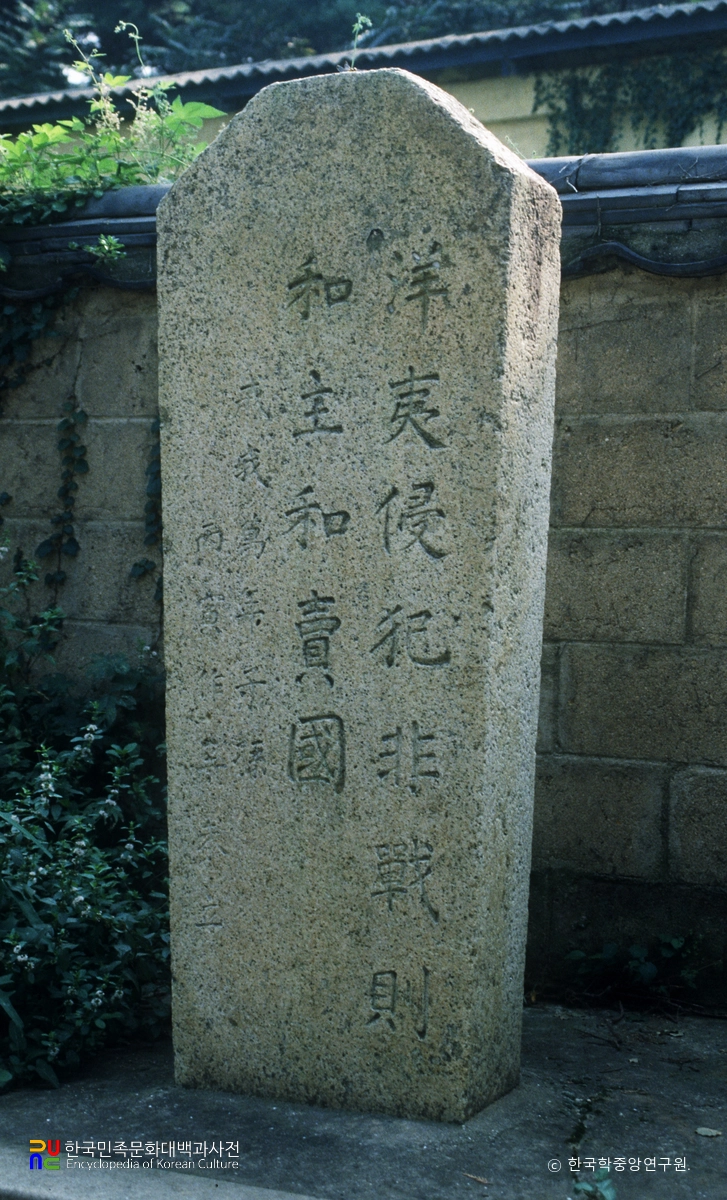 洋夷侵犯非戰則
和主和賣國
戒我萬年子孫
丙寅作辛未立
한국민족문화대백과사전
Encyclopedia of Korean Culture
© 한국학중앙연구원.